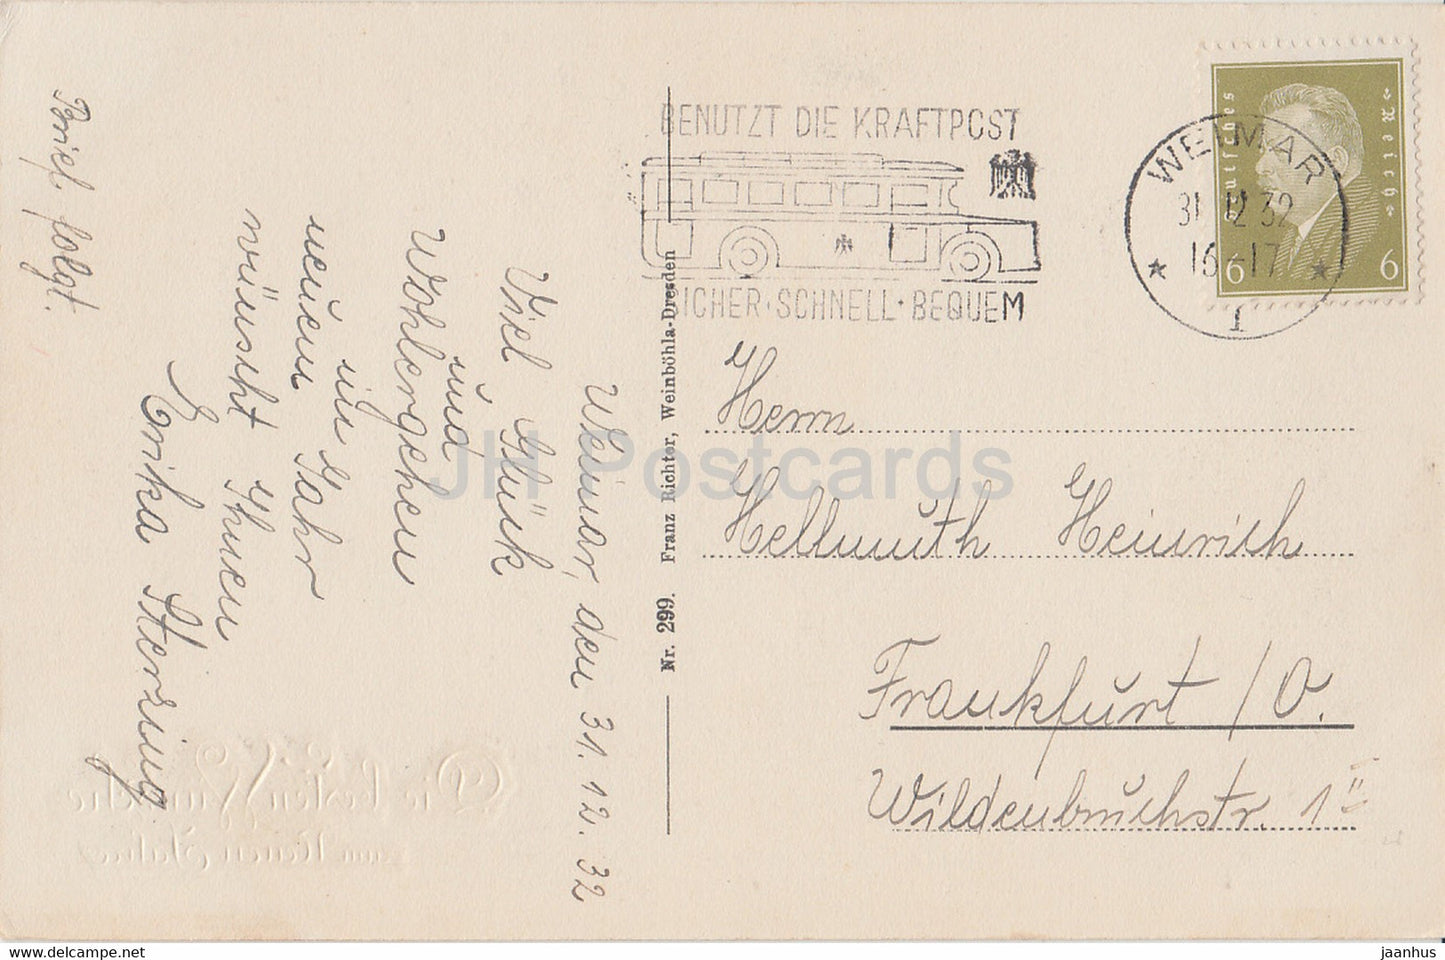 BENUTZT DIE KRAFTPOST
SICHER · SCHNELL · BEQUEM
WEIMAR
31.12.32
16-17
1
Deutsches Reich
6 6
Weimar, den 31. 12. 32
Viel Glück
und
Wohlergehen
im
neuen Jahr
wünscht Ihnen
Erika Sterzing
Brief folgt.
Nr. 299. Franz Richter, Weinböhla-Dresden
Herrn
Hellmuth Heinrich
Frankfurt / O.
Wildenbruchstr. 1 II
Die besten Wünsche
zum Neuen Jahre
JH Postcards
https://www.delcampe.net
jaanhus